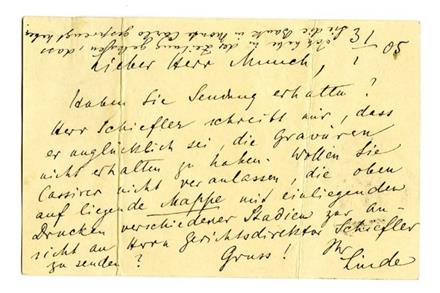 13/1 05
Lieber Herr Munch,
Haben Sie Sendung erhalten?
Herr Schiefler schreibt mir, dass
er unglücklich sei, die Gravüren
nicht erhalten zu haben. Wollen Sie
Cassirer nicht veranlassen, die oben
auf liegende Mappe mit einliegenden
Drucken verschiedener Stadien zur An-
sicht an Herrn Gerichtsdirektor Schiefler
zu senden? Gruss! Ihr
Linde
Ich habe in der Zeitung gelesen, dass
Sie die Bank in Monte Carlo gesprengt haben